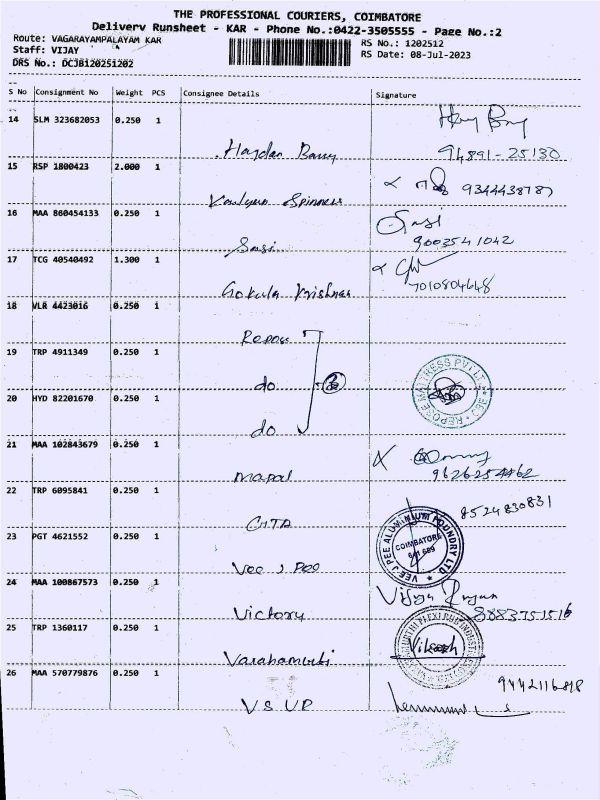 THE PROFESSIONAL COURIERS, COIMBATORE
Delivery Runsheet - KAR - Phone No.:0422-3505555 - Page No.:2
Route: VAGARAYAMPALAYAM KAR
RS No.: 1202512
Staff: VIJAY
RS Date: 08-Jul-2023
DRS No.: DCJB120251202
S No Consignment No Weight PCS Consignee Details Signature
14 SLM 323682053 0.250 1
Haydan Barry 94891-25130
15 RSP 1800423 2.000 1
Spinners 9344438787
16 MAA 860454133 0.250 1 Sasi
Sasi 9003541042
17 TCG 40540492 1.300 1
Gokula Krishnan 7010804648
18 VLR 4423016 0.250 1
Repose
19 TRP 4911349 0.250 1
do 3
REPOSE MATTRESS PVT LT
20 HYD 82201670 0.250 1
do
21 MAA 102843679 0.250 1
Mapal 9626254462
22 TRP 6095841 0.250 1
GHTA 8524830831
23 PGT 4621552 0.250 1
VEE J PEE ALUMINIUM FOUNDRY LTD
COIMBATORE
641 669
Vee J Pee
24 MAA 100867573 0.250 1
Victory 8883751516
25 TRP 1360117 0.250 1
Varahamurthi
26 MAA 570779876 0.250 1
VSUP